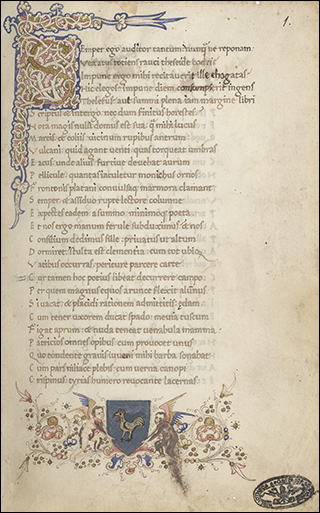 1.
Semper ego auditor tantum: nunq̃ ne reponam:
Vexatus totiens rauci theseide codri:
Impune ergo mihi recitaverit ille togatas
Hic elegos: impune diem consumpserit ingens
Thelefus: aut summi plena iam margine libri
Scriptus & intergo: nec dum finitus horestes:
Nota magis nulli domus est sua: q̃ mihi lucus
Martis: & eoliis vicinum rupibus antrum:
Vulcani: quid agant venti: quas torqueat umbras
Eacus: unde alius furtive devehat aurum
Pellicule: quantas iaculetur monichus ornos:
Frontonis platani convulsaq; marmora clamant
Semper: & assiduo rupte lectore columne:
Expectes eadem a summo: minimoq; poeta:
Et nos ergo manum ferule subduximus: & nos
Consilium dedimus sille: privatus ut altum
Dormiret: stulta est clementia: cum tot ubiq;
Vatibus occurras: periture parcere carte:
Cur tamen hoc potius libeat decurrere campo:
Per quem magnus equos arunce flexit alũnus:
Si vacat: & placidi rationem admittitis: edam:
Cum tener uxorem ducat spado: mevia tuscum
Figat aprum: & nuda teneat venabula mamma:
Patricios omnes opibus: cum provocet unus
Quo tondente gravis iuveni mihi barba sonabat:
Cum pars niliace plebis: cum verna canopi
Crispinus: tyrias humero revocante lacernas: